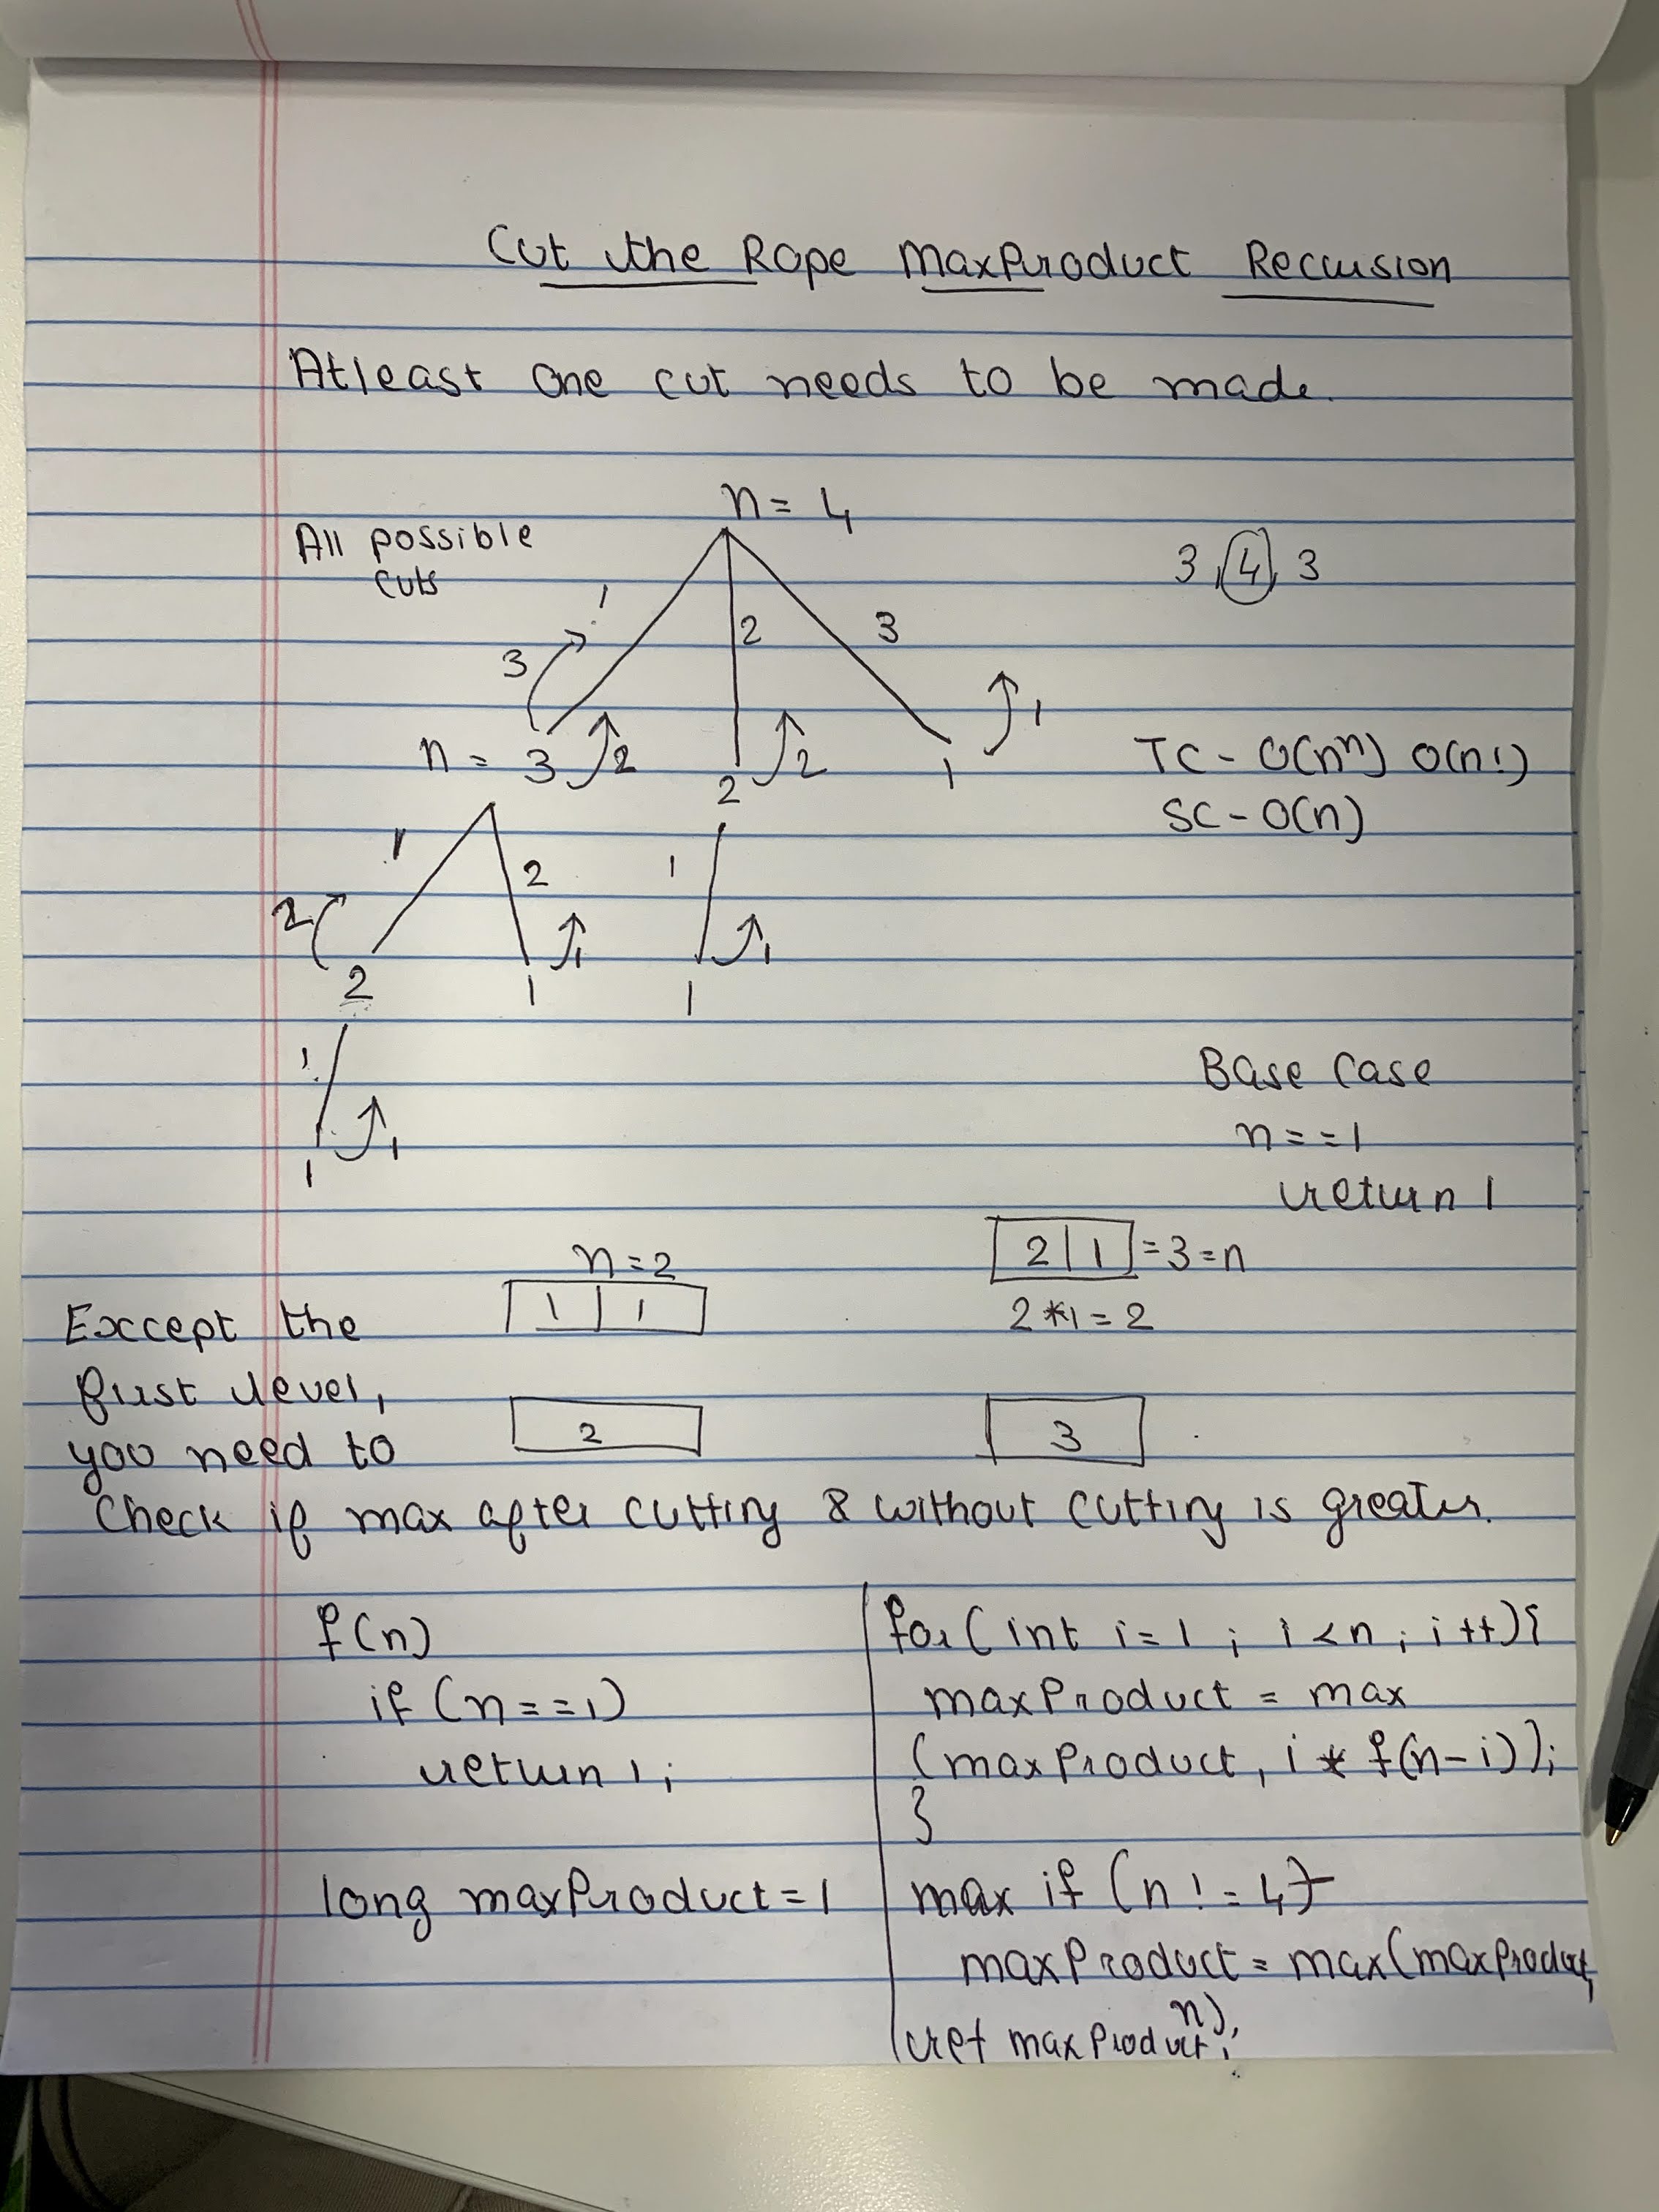 Cut the Rope MaxProduct Recursion
Atleast One cut needs to be made.
n = 4
All possible
cuts
3, 4, 3
1
2
3
3
1
n = 3
2
2
2
1
TC - O(nⁿ) O(n!)
SC - O(n)
1
2
1
2
1
1
2
1
1
1
1
1
Base Case
n==1
return 1
n=2
2 | 1 = 3 = n
1 | 1
2 * 1 = 2
Except the
first level,
2
3
you need to
Check if max after cutting & without cutting is greater.
f(n)
if (n==1)
return 1;
long maxProduct = 1
for( int i=1 ; i<n ; i++){
maxProduct = max
(maxProduct, i * f(n-i));
}
max if (n != 4)
maxProduct = max(maxProduct,
n);
ret maxProduct;